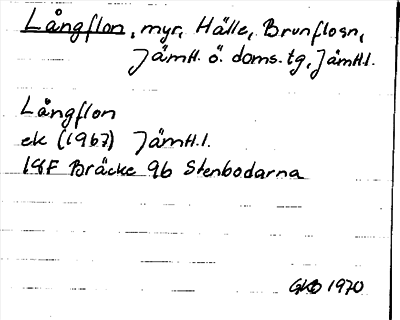 Långflon, myr, Hälle, Brunflo sn,
Jämtl. ö. doms. tg, Jämtl.
Långflon
ek (1967) Jämtl.l.
18F Bräcke 9b Stenbodarna
1970